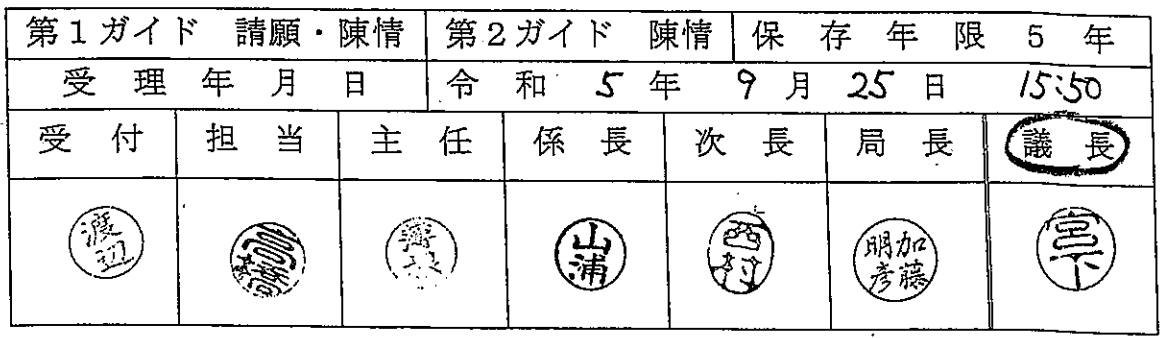 第1ガイド 請願・陳情 第2ガイド 陳情 保存年限 5年
受理年月日 令和5年9月25日 15:50
受付 担当 主任 係長 次長 局長 議長
渡辺 高橋 山浦 西村 加藤明彦 宮下